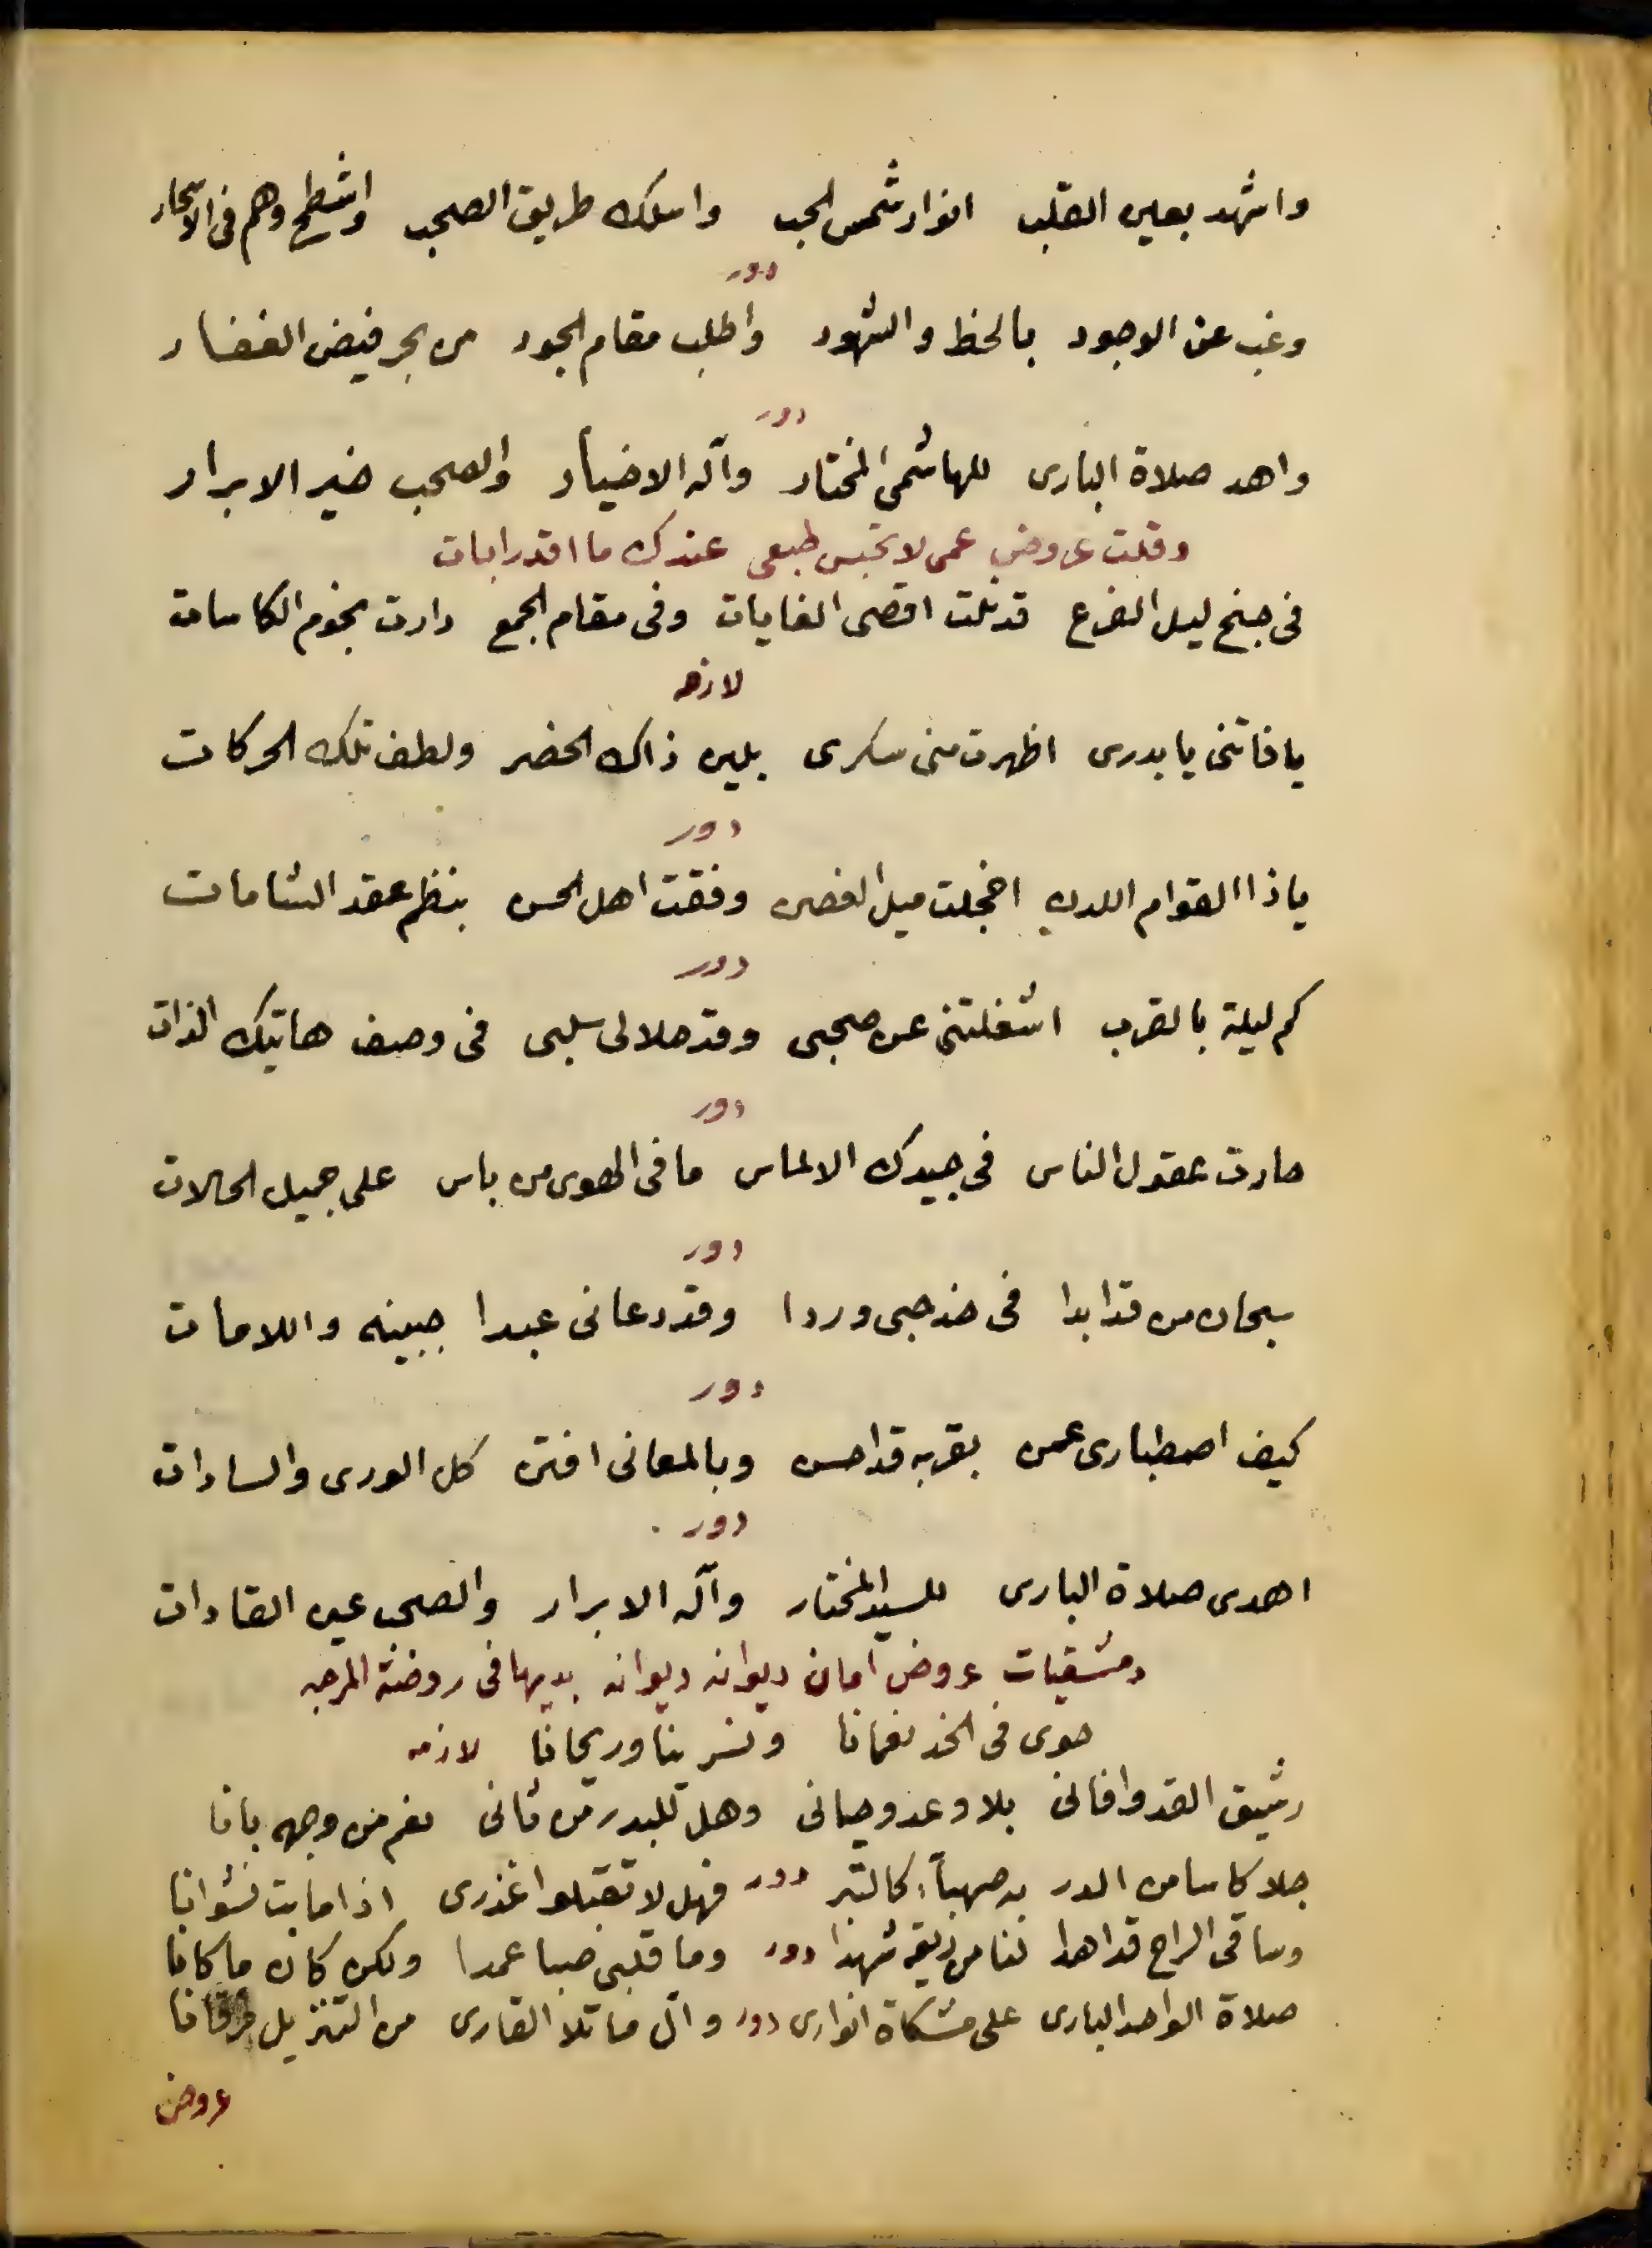 واشهد بعين القلب انوار شمس الحب واسلك طريق الصحب واشطح وهم في الاسحار
دور
وغب عن الوجود بالحظ والشهود واطلب مقام الجود من بحر فيض الغفار
دور
واهد صلاة البارى للهاشمى المختار وآله الاخيار والصحب خير الابرار
وقلت عروض عمى لا تحبس طبعى عندك ما اقدر ابات
فى جنح ليل الفرع قد نلت اقصى الغايات وفى مقام الجمع دارت نجوم الكاسات
لازمه
يا فاتنى يا بدرى اظهرت منى سكرى بلين ذاك الخصر ولطف تلك الحركات
دور
يا ذا القوام اللدن اخجلت ميل الغصن وفقت اهل الحسن بنظم عقد الشامات
دور
كم ليلة بالقرب اشغلتنى عن صحبى وقد حلا لى سلبى فى وصف هاتيك الذات
دور
حارت عقول الناس فى جيدك الالماس ما فى الهوى من باس على جميل الحالات
دور
سبحان من قد ابدا فى خد حبى وردا وقد دعانى عبدا جبينه واللامات
دور
كيف اصطبارى عمن بقربه قد احسن وبالمعانى افتن كل الورى والسادات
دور
اهدى صلاة البارى للسيد المختار وآله الابرار والصحب عين القادات
دمشقيات عروض امان ديوانه ديوانه بديها فى روضة المرجه
حوى فى الخد نعمانا ونسرينا وريحانا لازمه
رشيق القد وافانى بلا وعد وحيانى وهل للبدر من ثانى نعم من وجهه بانا
جلا كاسا من الدر به صهباء كالتبر دور فهل لا تقبلوا عذرى اذا ما بت نشوانا
وساقى الراح قد اهدا لنا من ريقه شهدا دور وما قلبى صبا عمدا ولكن كان ما كانا
صلاة الواحد البارى على مشكاة انوارى دور وآل ما تلا القارى من التنزيل فرقانا
عروض